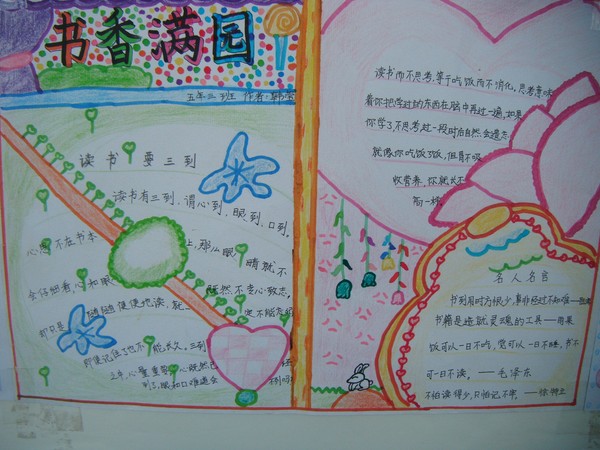 书香满园
五年二班 作者:
读书要三到
读书有三到,谓心到,眼到,口到。
心 不在书本上,那么眼睛就不
会仔细看,心和眼 既然不专心致志,
却只是随随便便地读,就一定不能
即使记住了也不能长久。三到
之中,心 重要。心既然已
到了,眼和口难道会
读书而不思考,等于吃饭而不消化。思考意味
着你把学过的东西在脑中再过一遍,如果
你学了,不思考,过一段时间自然会遗忘
就像你吃了饭,但胃不吸
收营养,你就长不
一样
名人名言
书到用时方恨少,事非经过不知难——
书籍是造就灵魂的工具——雨果
饭可以一日不吃,觉可以一日不睡,书不
可一日不读。——毛泽东
不怕读得少,只怕记不牢。——徐特立